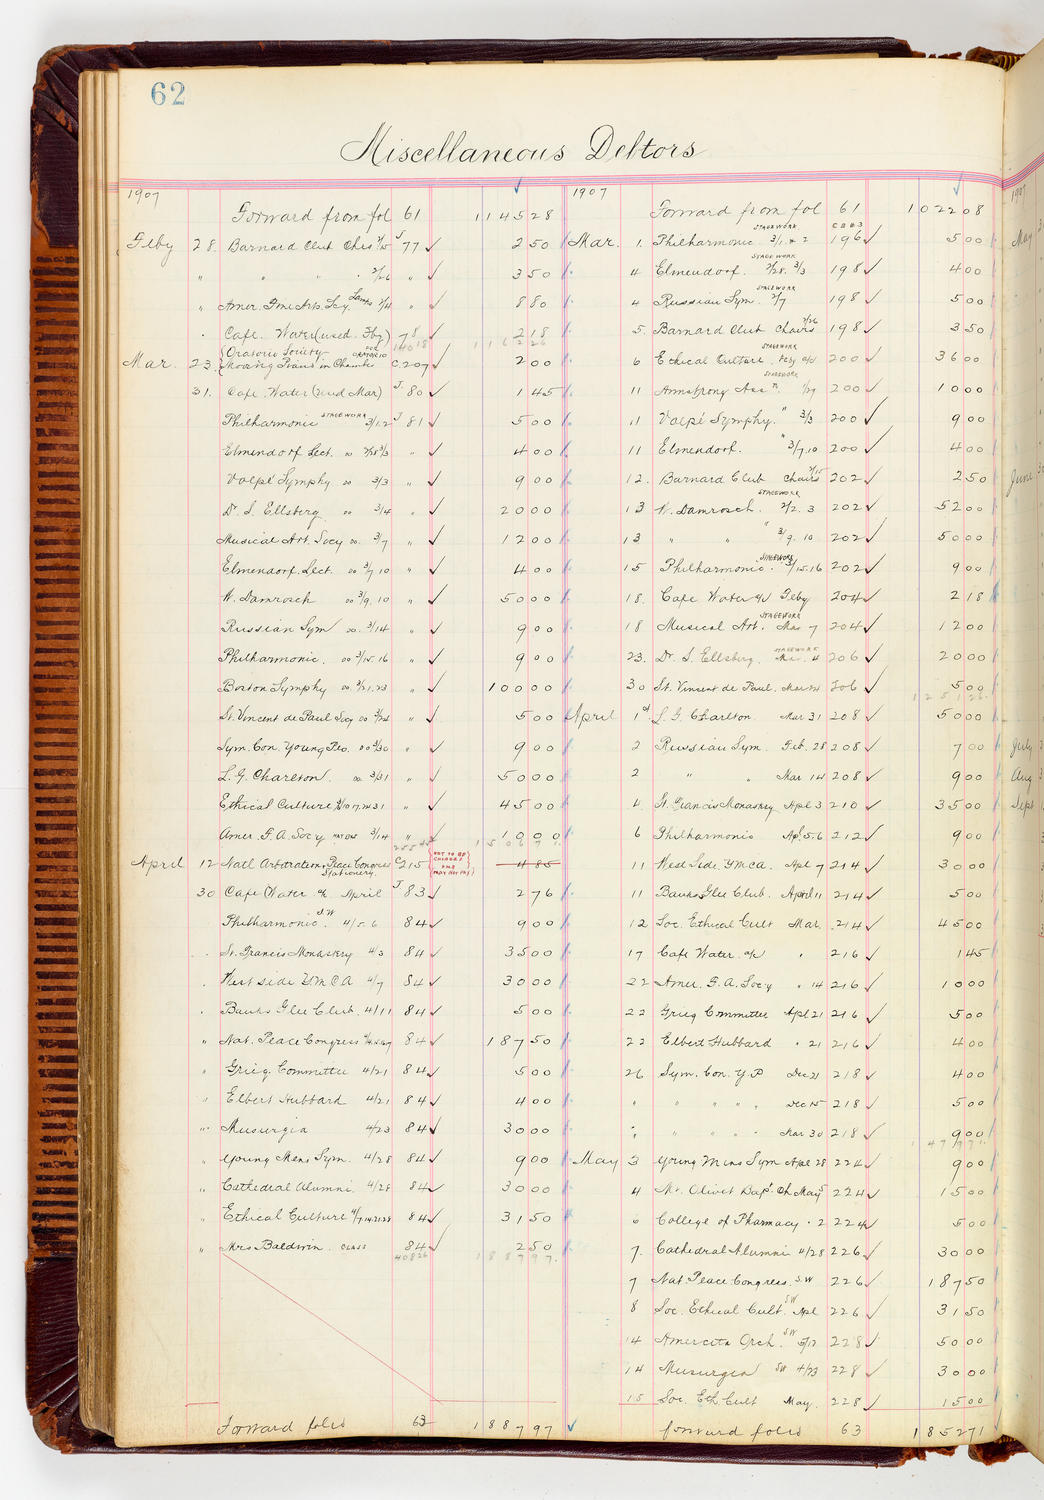 62
Miscellaneous Debtors
1907
Forward from fol 61 1145 28
Feby 28. Barnard Club Chrs 2/15 J 77 2 50
" " " " 2/26 " 3 50
" Amer. Fine Arts. Socy. Lamps 2/4 " 8 80
Cafe. Water (used Feby) 78 2 18
1162 26
Mar. 23. Oratorio Society FOR ORATORIO
Moving Piano in Chamber C. 207 2 00
31. Cafe. Water (used Mar) J. 80 1 45
Philharmonic STAGEWORK 3/1.2 J 81 5 00
Elmendorf Lect. do 2/28 3/3 " 4 00
Volpé Symphy do 3/3 " 9 00
Dr. S. Ellsberg do 3/4 " 20 00
Musical Art. Socy do. 3/7 " 12 00
Elmendorf. Lect. do 3/7 10 " 4 00
W. Damrosch do 3/9. 10 " 50 00
Russian Sym do. 3/14 " 9 00
Philharmonic. do 3/15.16 " 9 00
Boston Symphy do. 3/21.23 " 100 00
St. Vincent de Paul Socy do 3/24 " 5 00
Sym. Con. Young Peo. do 3/30 " 9 00
L. G. Charlton. do 3/31 " 50 00
Ethical Culture 3/10 17. 24 31 " 45 00
Amer. F. A. Socy 3/14 " 10 00
1506 71
April 12 Natl Arbitration & Peace Congress
Stationery. C 215 NOT TO BE CHARGED 4 85
30 Cafe Water a/c April J 83 2 76
Philharmonic. S.W 4/5. 6 84 9 00
St. Francis Monastery 4/3 84 35 00
West side Y.M.C.A 4/7 84 30 00
Banks Glee Club. 4/11 84 5 00
" Nat. Peace Congress 84 187 50
" Grieg. Committee 4/21 84 5 00
" Elbert Hubbard 4/21 84 4 00
" Musurgia 4/23 84 30 00
" Young Mens Sym. 4/28 84 9 00
" Cathedral Alumni. 4/28 84 30 00
" Ethical Culture 4/7 14 21 28 84 31 50
" Mrs Baldwin. CLASS 84 2 50
408 26 1887 97
Forward folio 63 1887 97
1907
Forward from fol 61 1022 08
Mar. 1. Philharmonic STAGEWORK 3/1. & 2 196 5 00
4 Elmendorf. STAGEWORK 2/28. 3/3 198 4 00
4 Russian Sym. STAGEWORK 2/7 198 5 00
5. Barnard Club Chairs 2/26 198 3 50
6 Ethical Culture STAGEWORK Feby a/c 200 36 00
11 Armstrong Assn. STAGEWORK 200 10 00
11 Volpé Symphy. " 3/3 200 9 00
11 Elmendorf. " 3/7.10 200 4 00
12. Barnard Club Chairs 2/15 202 2 50
13 W. Damrosch. STAGEWORK 2/2. 3 202 52 00
13 " " " 3/9. 10 202 50 00
15 Philharmonic. STAGEWORK 3/15.16 202 9 00
18. Cafe Water a/c Feby 204 2 18
18 Musical Art. STAGEWORK Mar 7 204 12 00
23. Dr. S. Ellsberg. STAGEWORK Mar. 4 206 20 00
30 St. Vincent de Paul. Mar 24 206 5 00
1251 26
April 1st L. G. Charlton. Mar 31 208 50 00
2 Russian Sym. Feb. 28 208 7 00
2 " " Mar 14 208 9 00
4 St. Francis Monastery Apl 3 210 35 00
6 Philharmonic Apl 5.6 212 9 00
11 West Side Y.M.C.A. Apl 7 214 30 00
11 Banks Glee Club. April 11 214 5 00
12 Soc. Ethical Cult Mar. 214 45 00
17 Cafe Water. a/c " 216 1 45
22 Amer. F. A. Socy " 14 216 10 00
22 Grieg Committee Apl 21 216 5 00
22 Elbert Hubbard " 21 216 4 00
26 Sym. Con. Y.P Dec 21 218 4 00
" " " " " Dec 15 218 5 00
" " " " " Mar 30 218 9 00
1477 71
May 3 Young Mens Sym Apl 28 224 9 00
4 Mt. Olivet Bapt. Ch May 5 224 15 00
6 College of Pharmacy " 2 224 5 00
7. Cathedral Alumni 4/28 226 30 00
7 Nat. Peace Congress. S.W 226 187 50
8 Soc. Ethical Cult. S.W Apl 226 31 50
14 Amicitia Orch. S.W 228 50 00
14 Musurgia S.W 4/23 228 30 00
15 Soc. Eth. Cult May. 228 15 00
forward folio 63 1852 71
1907
May
June
July
Aug
Sept